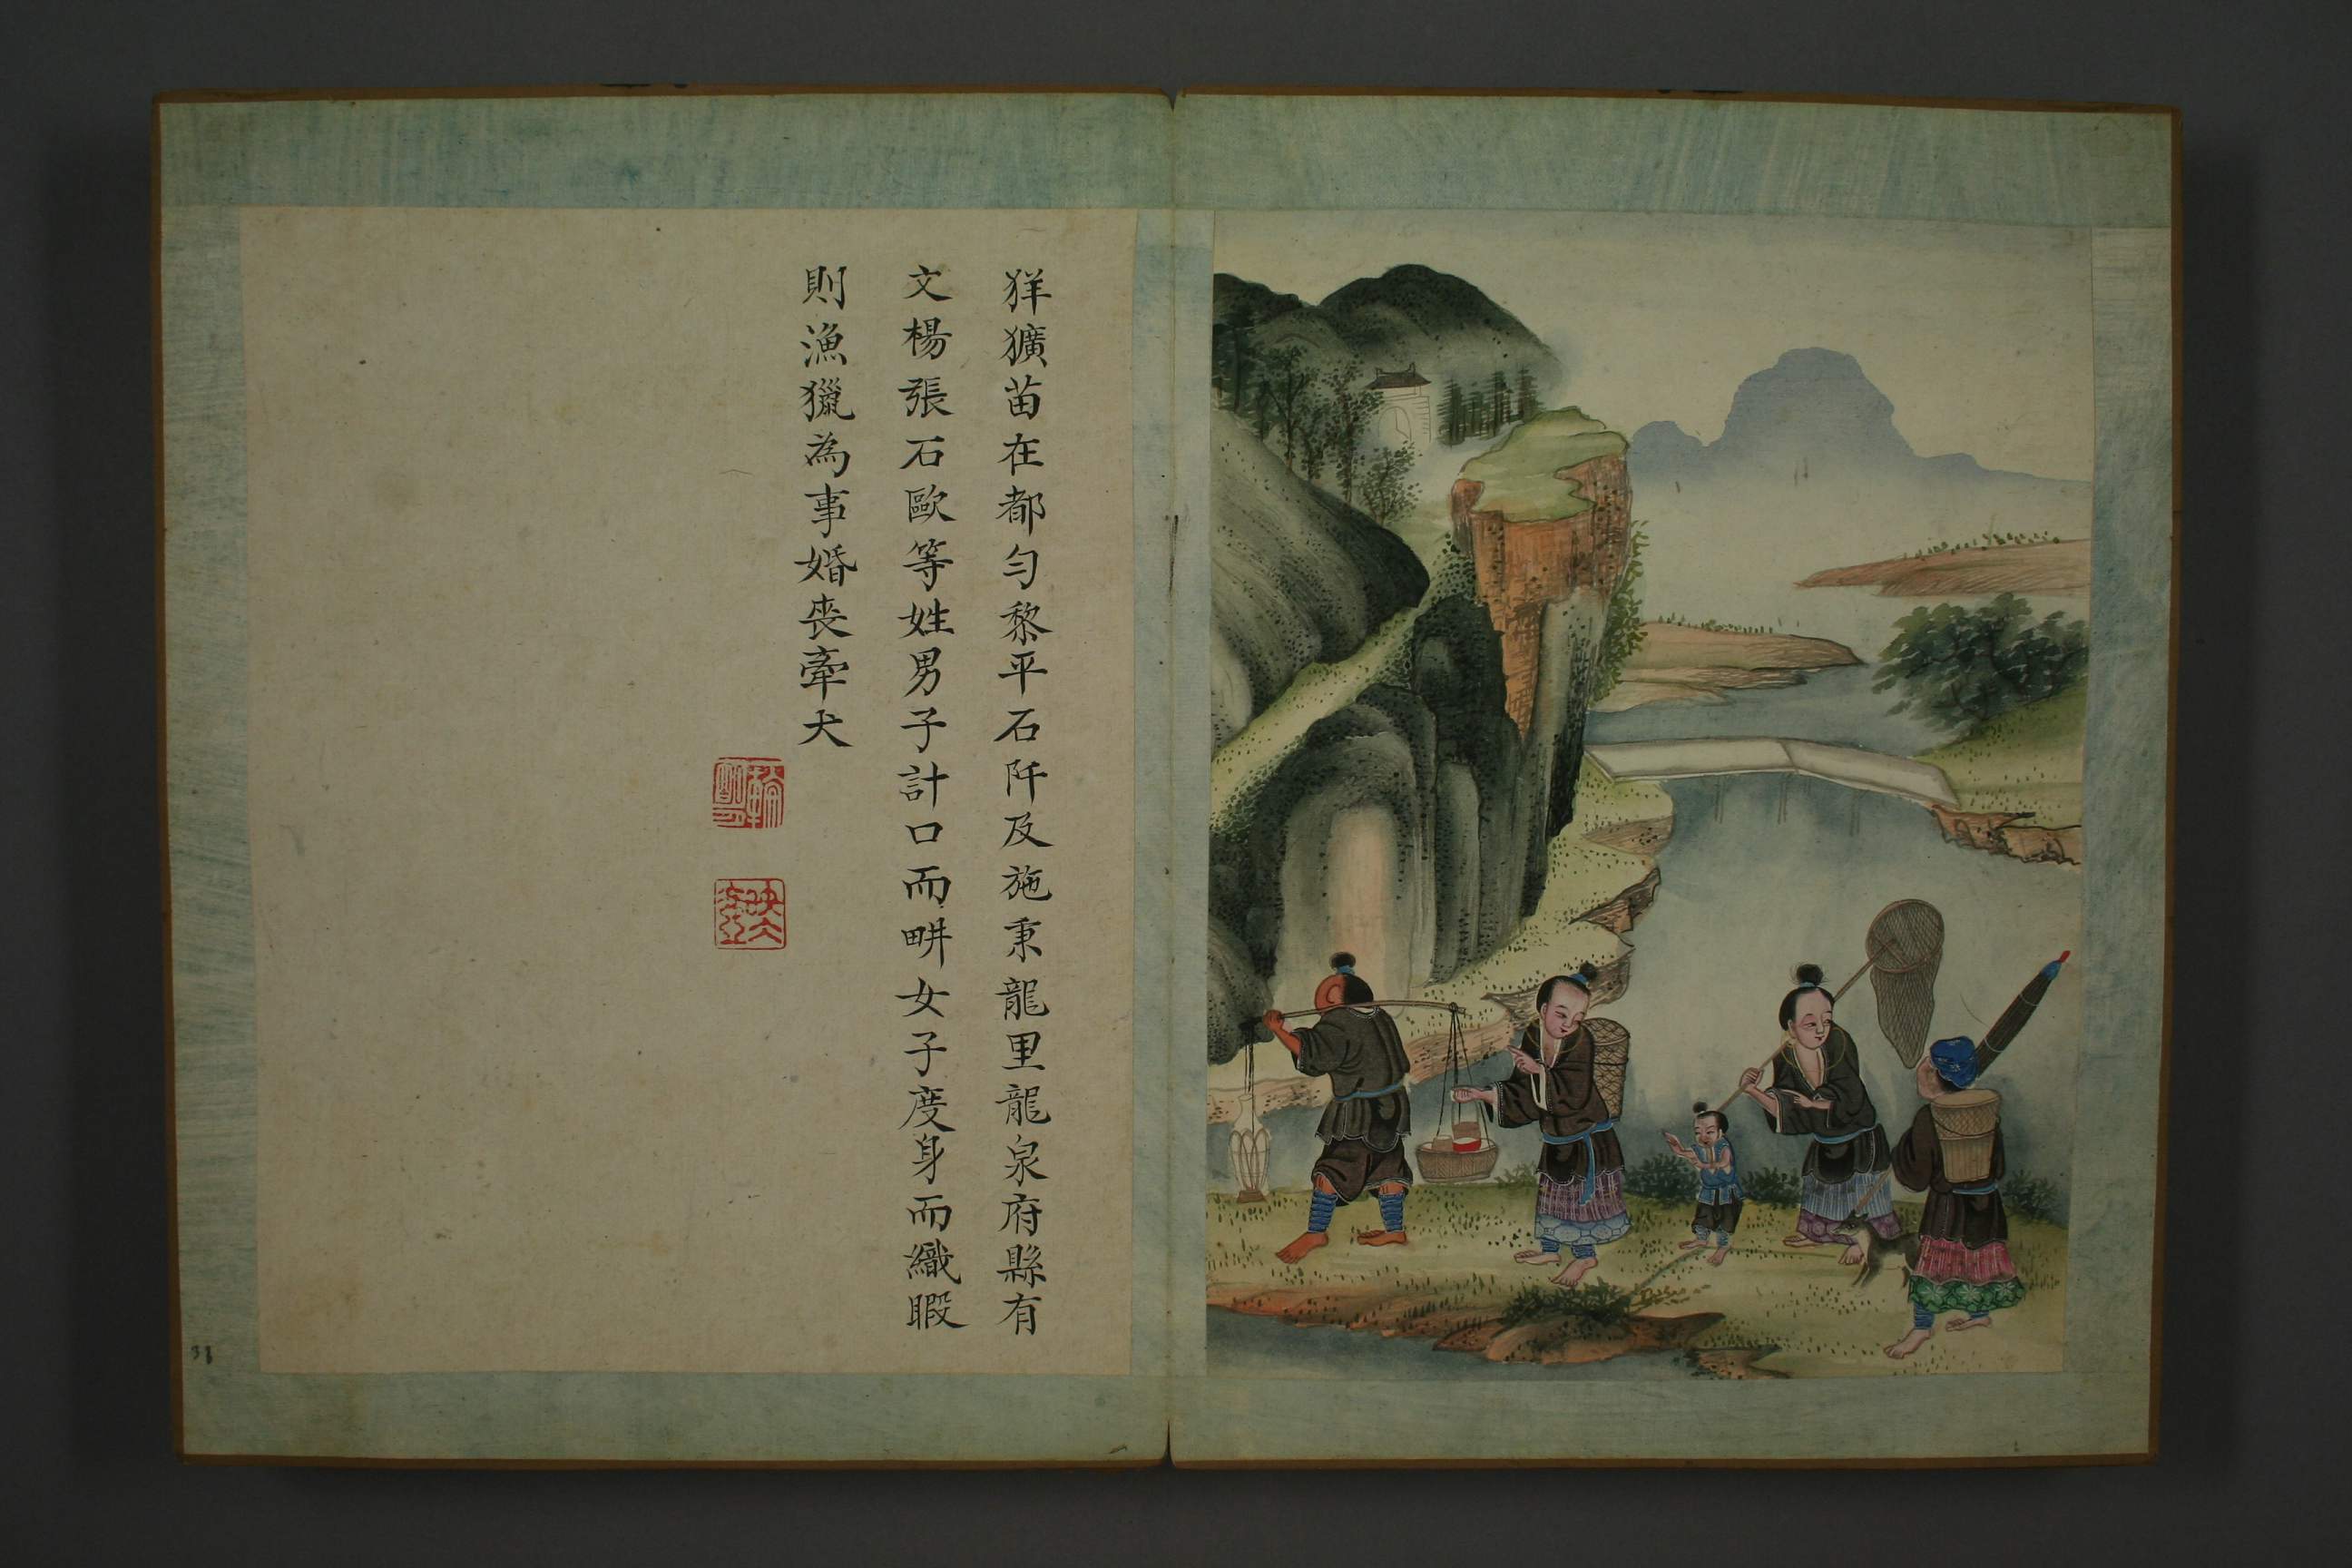 𤞏獷苗在都勻黎平石阡及施秉龍里龍泉府縣有
文楊張石歐等姓男子計口而畊女子度身而織暇
則漁獵為事婚喪牽犬
31